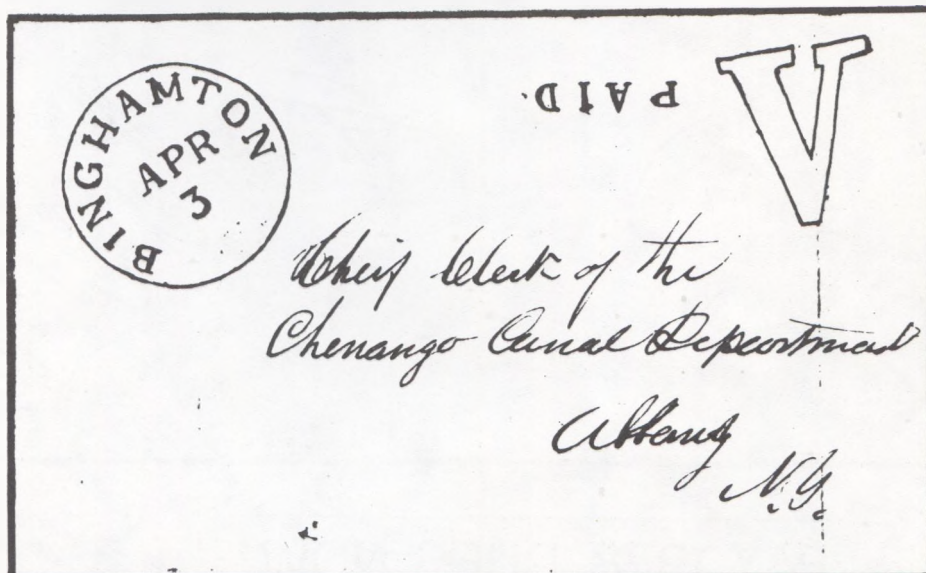 BINGHAMTON
APR
3
PAID
V
Cheif Clerk of the
Chenango Canal Department
Albany
N.Y.